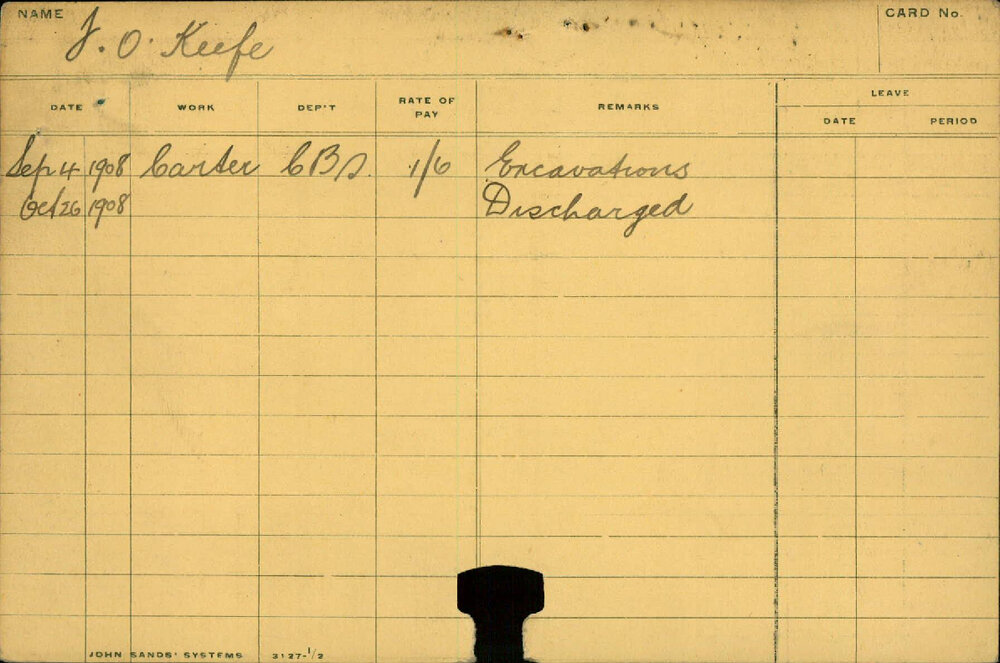 NAME J. O. Keefe CARD No.
DATE WORK DEP'T RATE OF PAY REMARKS LEAVE
DATE PERIOD
Sep 4 1908 Carter CBD. 1/6 Excavations
Oct 26 1908 Discharged
JOHN SANDS' SYSTEMS 3127-1/2